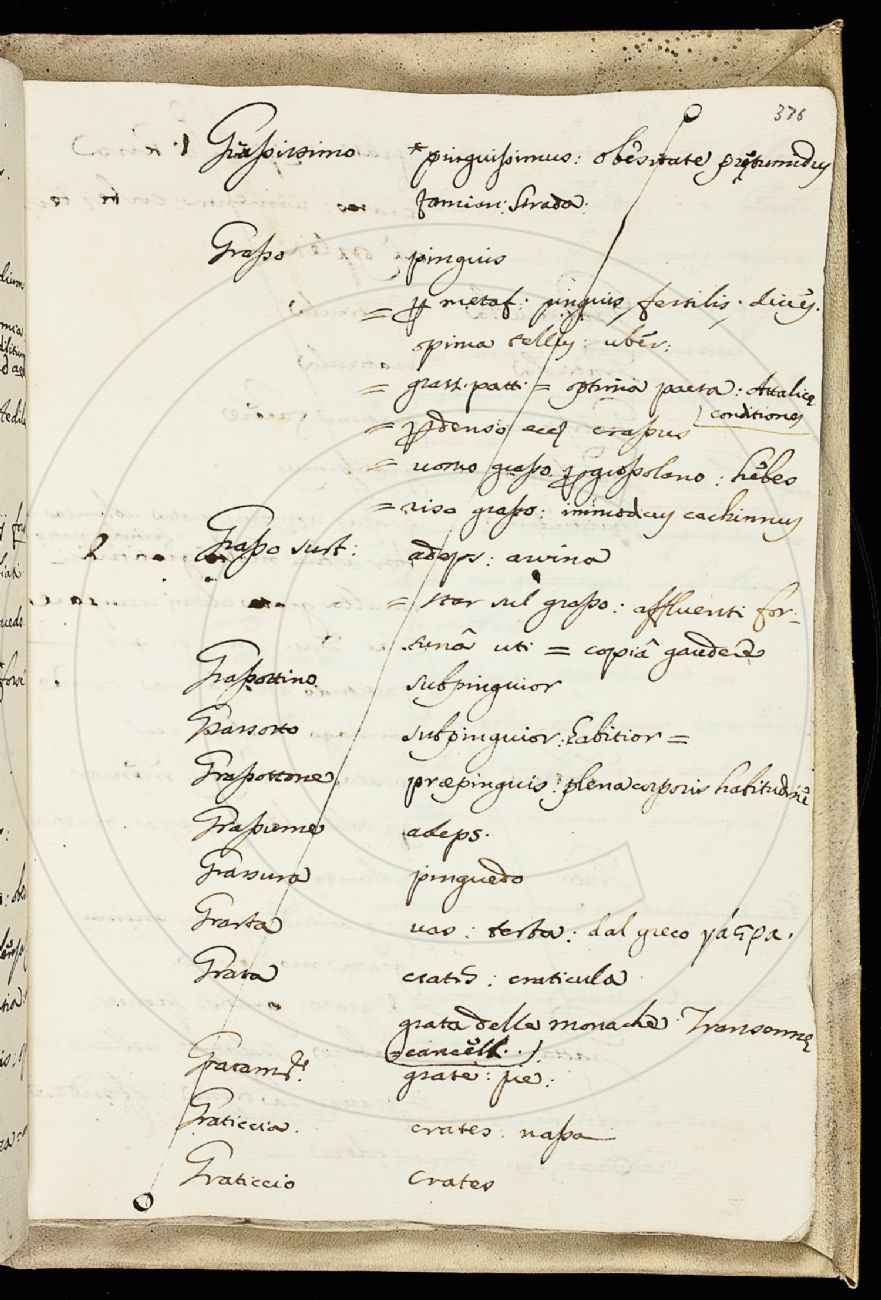 376
1 Graſsissimo * pinguiſsimus: obesitate prętumidus
famian: Strada.
Graſso pinguis
= ꝑ metaf: pinguis, fertilis. dices.
opima tellus: uber:
= grass. patti = optima pacta: Attalicę
conditiones
= ꝑ denso craſsus
= uomo graſso ꝑ groſsolano: hebes
= riso graſso: immodicus cachinnus
2 Graſso sust: adeps: arvina
= star sul graſso: affluenti for-
tunâ uti = copiâ gaudere
Graſsottino subpinguior
Grassotto subpinguior: habitior =
Graſsottone præpinguis: plena corporis habitudine
Graſsume adeps.
Grassura pinguedo
Grasta vas: testa: dal greco γάστρα.
Grata crates: craticula
grata delle monache Transenne
cancelli.
Gratamte. grate: pie:
Graticcia. crates: naſsa
Graticcio crates